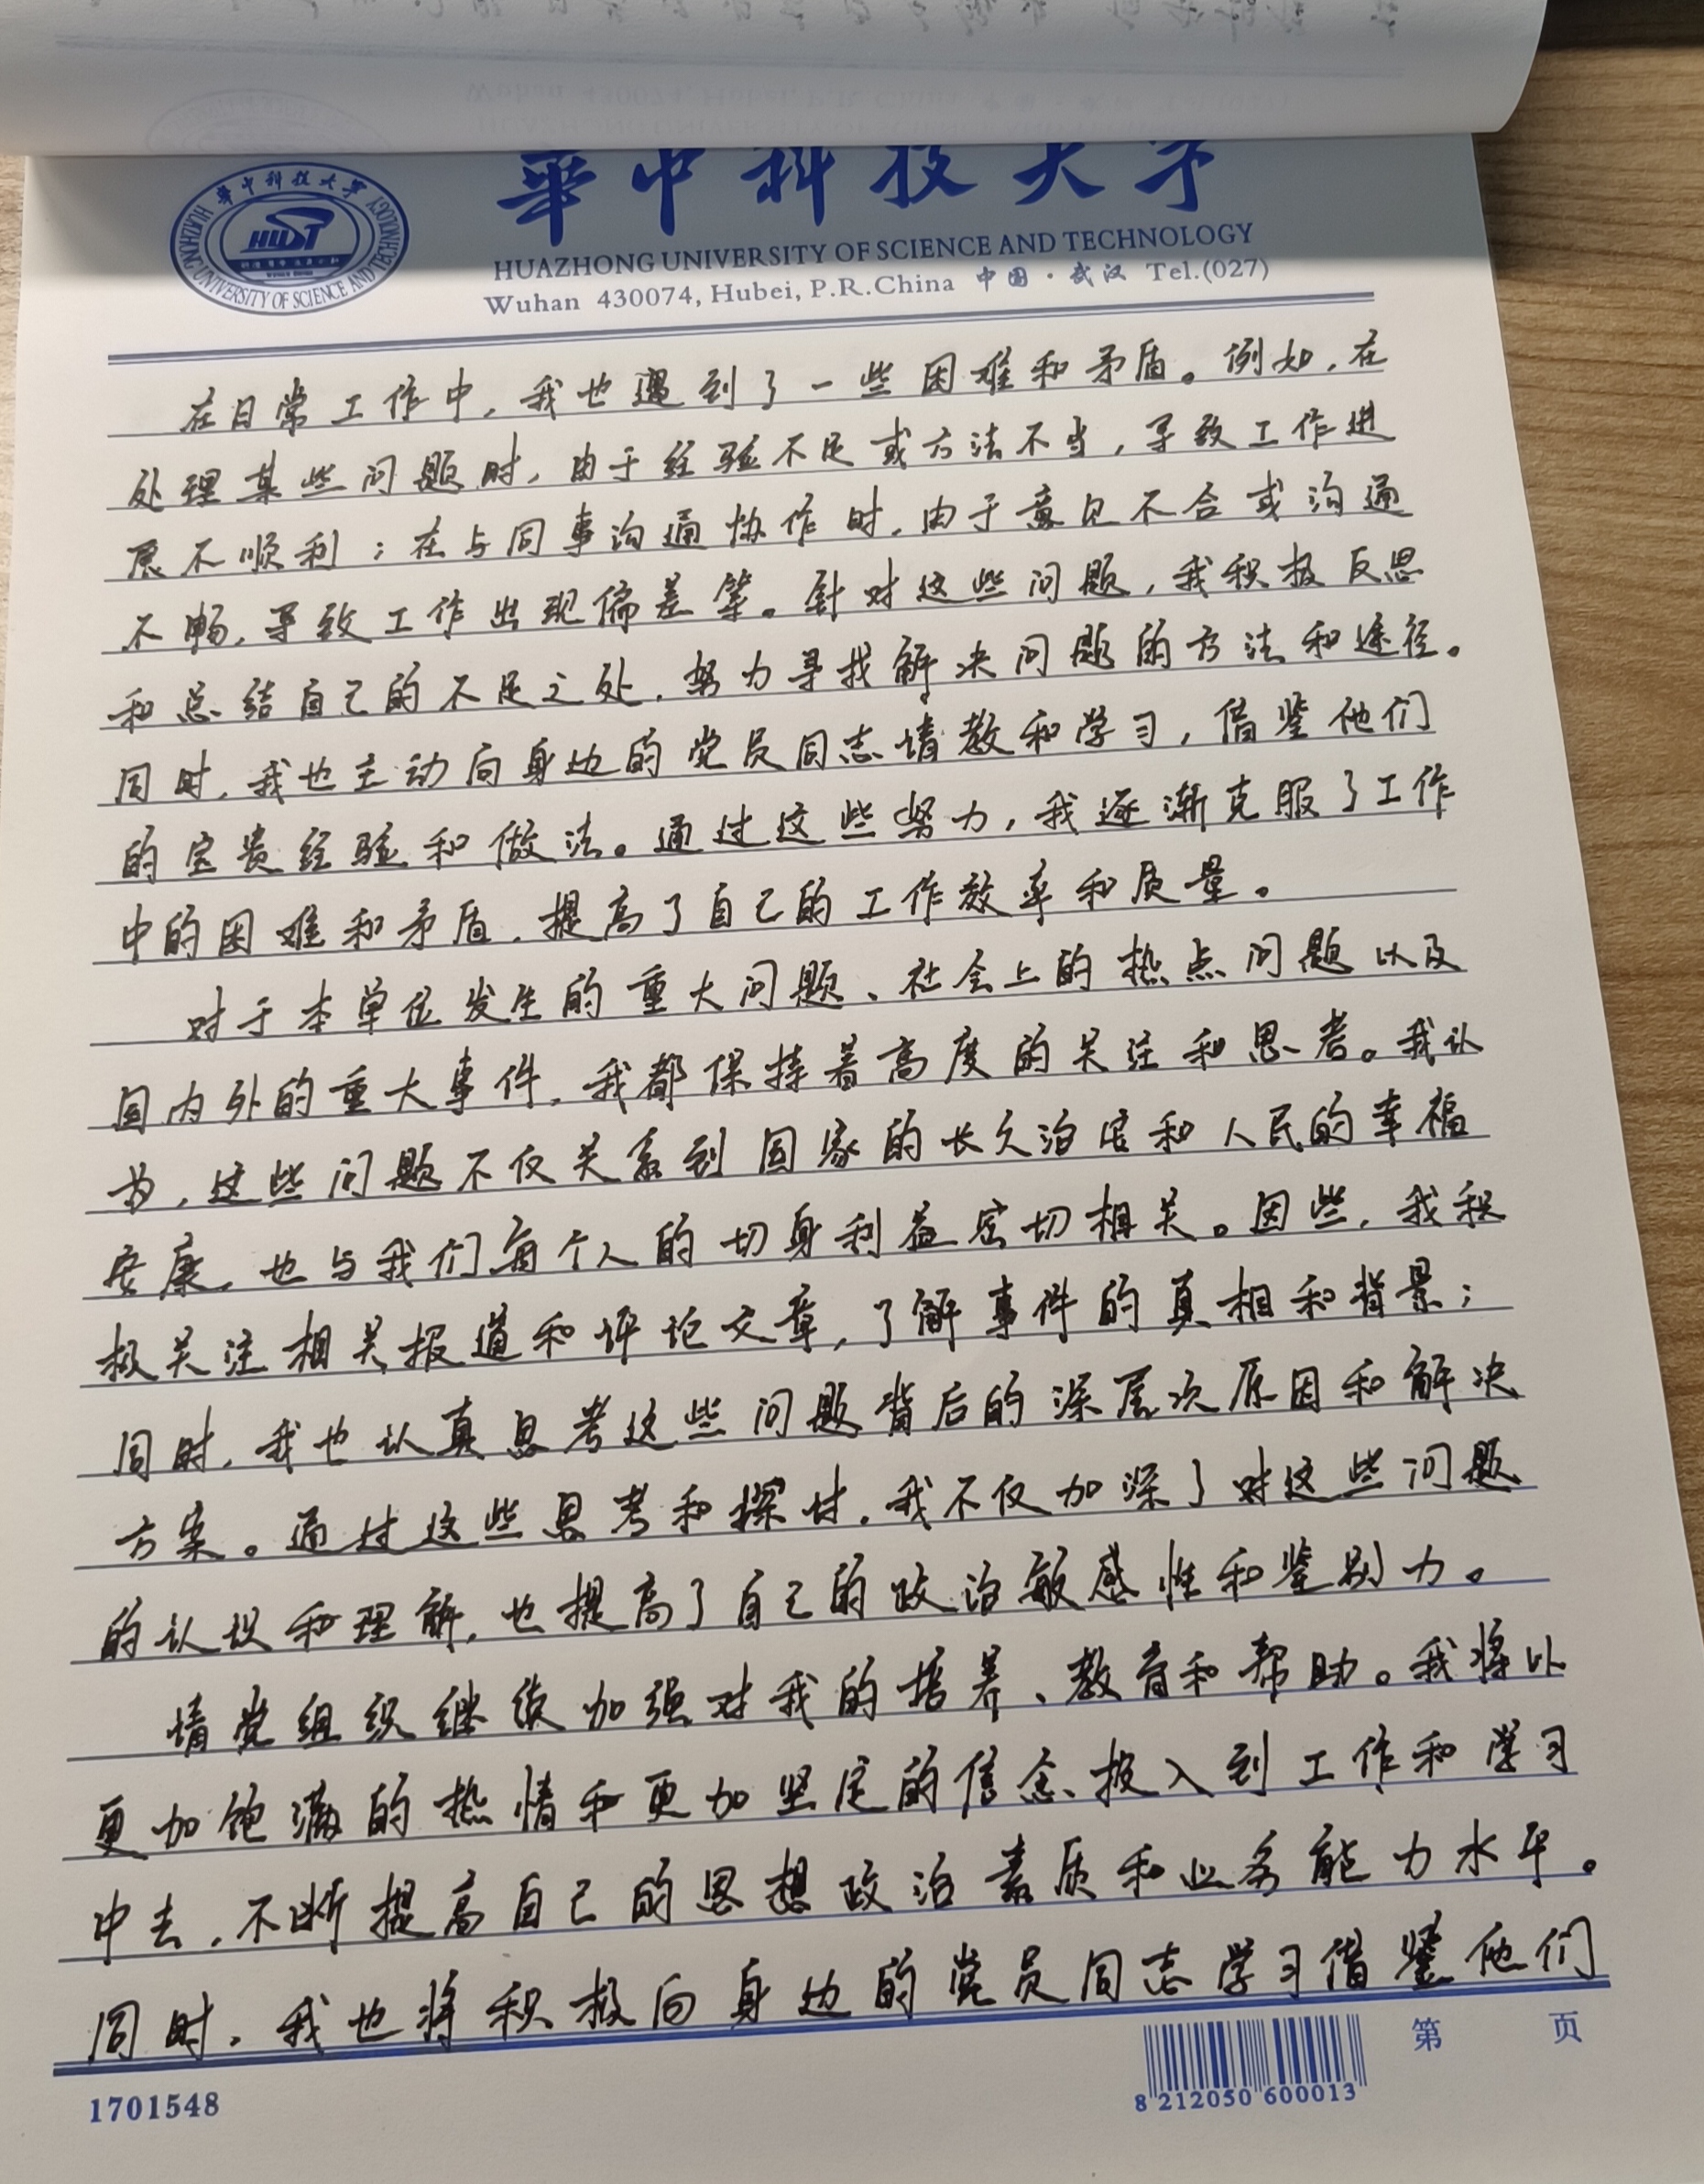 華中科技大学
HUAZHONG UNIVERSITY OF SCIENCE AND TECHNOLOGY
Wuhan 430074, Hubei, P.R.China 中国·武汉 Tel.(027)
華中科技大学
HUAZHONG UNIVERSITY OF SCIENCE AND TECHNOLOGY
HUST
在日常工作中,我也遇到了一些困难和矛盾。例如,在
处理某些问题时,由于经验不足或方法不当,导致工作进
展不顺利;在与同事沟通协作时,由于意见不合或沟通
不畅,导致工作出现偏差等。针对这些问题,我积极反思
和总结自己的不足之处,努力寻找解决问题的方法和途径。
同时,我也主动向身边的党员同志请教和学习,借鉴他们
的宝贵经验和做法。通过这些努力,我逐渐克服了工作
中的困难和矛盾,提高了自己的工作效率和质量。
对于本单位发生的重大问题、社会上的热点问题以及
国内外的重大事件,我都保持着高度的关注和思考。我认
为,这些问题不仅关系到国家的长久治安和人民的幸福
安康,也与我们每个人的切身利益密切相关。因些,我积
极关注相关报道和评论文章,了解事件的真相和背景;
同时,我也认真思考这些问题背后的深层次原因和解决
方案。通过这些思考和探讨,我不仅加深了对这些问题
的认识和理解,也提高了自己的政治敏感性和鉴别力。
请党组织继续加强对我的培养、教育和帮助。我将以
更加饱满的热情和更加坚定的信念投入到工作和学习
中去,不断提高自己的思想政治素质和业务能力水平。
同时,我也将积极向身边的党员同志学习借鉴他们
1701548
8 212050 600013
第 页